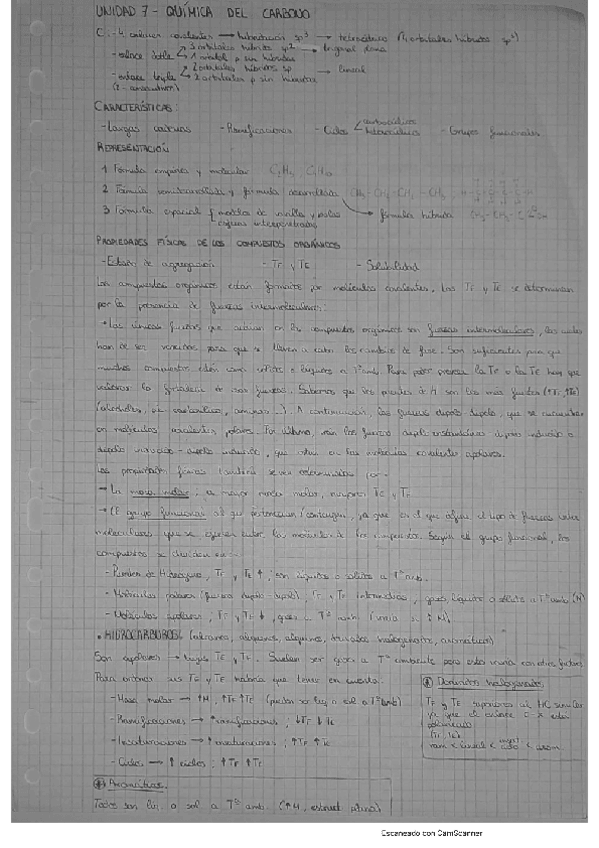 UNIDAD 7 - QUÍMICA DEL CARBONO
C: - 4 enlaces covalentes → hibridación sp³ → tetraédrico (4 orbitales híbridos sp³)
- enlace doble 3 orbitales híbridos sp² → trigonal plana
1 orbital p sin hibridar
- enlace triple 2 orbitales híbridos sp → lineal
2 orbitales p sin hibridar
CARACTERÍSTICAS:
- Largas cadenas - Ramificaciones - Ciclos homocíclicos heterocíclicos - Grupos funcionales
REPRESENTACIÓN
1 Fórmula empírica y molecular
2 Fórmula semidesarrollada y fórmula desarrollada CH₃ - CH₂ - CH₂ - CH₃
3 Fórmula espacial modelos de varillas y bolas → fórmula híbrida
esferas interpenetradas
PROPIEDADES FÍSICAS DE LOS COMPUESTOS ORGÁNICOS
- Estado de agregación - TF y TE - Solubilidad
Los compuestos orgánicos están formados por moléculas covalentes, las TF y TE se determinan
por la presencia de fuerzas intermoleculares:
Las únicas fuerzas que actúan en los compuestos orgánicos son fuerzas intermoleculares, las cuales
han de ser vencidas para que se lleven a cabo los cambios de fase. Son suficientes para que
muchos compuestos estén como sólidos o líquidos a Tª amb. Para poder predecir la TF o la TE hay que
valorar la fortaleza de esas fuerzas. Sabemos que los puentes de H son los más fuertes (↑TF, ↑TE)
(alcoholes, ác carboxílicos, aminas...). A continuación, las fuerzas dipolo-dipolo, que se encuentran
en moléculas covalentes polares. Por último, las fuerzas dipolo instantáneo dipolo inducido o
que están en las moléculas covalentes apolares.
Las propiedades físicas también serán determinadas por:
→ La masa molar: a mayor masa molar, mayores TE y TF
→ El grupo funcional al que pertenezcan / contengan, ya que es el que define el tipo de fuerzas inter
moleculares que se ejercen entre las moléculas de los compuestos. Según el grupo funcional, los
compuestos se dividen en:
- Puentes de Hidrógeno, TF y TE ↑, son líquidos o sólidos a Tª amb.
- Moléculas polares (fuerzas dipolo-dipolo), TF y TE intermedias, gases, líquidos o sólidos a Tª amb (M)
- Moléculas apolares, TF y TE ↓, gases a Tª amb. (varía si ↑ M).
• HIDROCARBUROS (alcanos, alquenos, alquinos, derivados halogenados, aromáticos)
Son apolares → bajas TE y TF. Suelen ser gases a Tª ambiente pero esto varía con otros factores
Para ordenar sus TF y TE habría que tener en cuenta:
- Masa molar → ↑M, ↑TE ↑TF (pueden ser líq o sól a Tª amb)
- Ramificaciones → ↑ ramificaciones, ↓TF ↓TE
- Insaturaciones → ↑ insaturaciones, ↑TF ↑TE
- Ciclos → ↑ ciclos, ↑TF ↑TE
Derivados halogenados
TF y TE superiores al HC similar
ya que el enlace C-X está
polarizado
ram < lineal < < ciclo < arom.
Aromáticos
Todos son líq. o sól a Tª amb. (↑M, estruct plana)
Escaneado con CamScanner